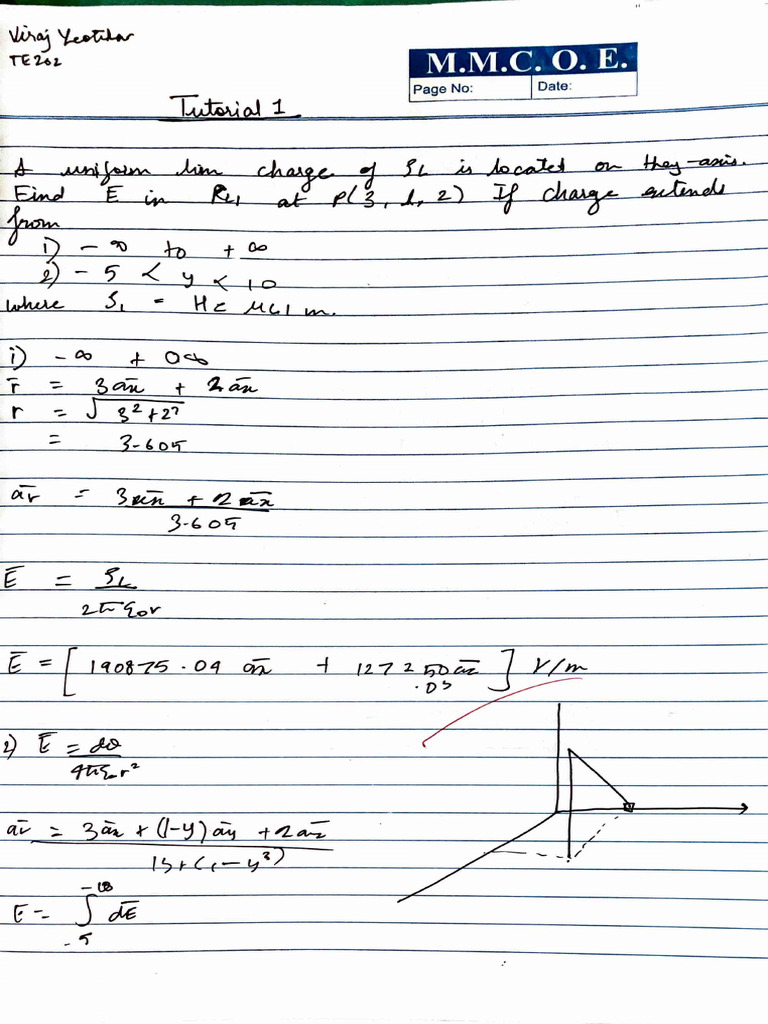 Viraj
TE202
M.M.C.O.E.
Page No: Date:
Tutorial 1
A uniform line charge of ρL is located on the y-axis.
Find E in at P(3, 1, 2) If charge extends
from
1) -∞ to +∞
2) -5 < y < 10
where ρL = μC/m.
i) -∞ + ∞
r̄ = 3 a̅x̅ + 2
r = √3² + 2²
= 3.605
a̅r̅ = 3 + 2
3.605
E̅ = ρL
2πε₀r
E̅ = [190875.09 a̅x̅ + 127250.03 a̅z̅] V/m
2) E̅ = dQ
4πε₀r²
a̅r̅ = 3 a̅x̅ + (1-y) a̅y̅ + 2 a̅z̅
E = ∫ dE̅
-5